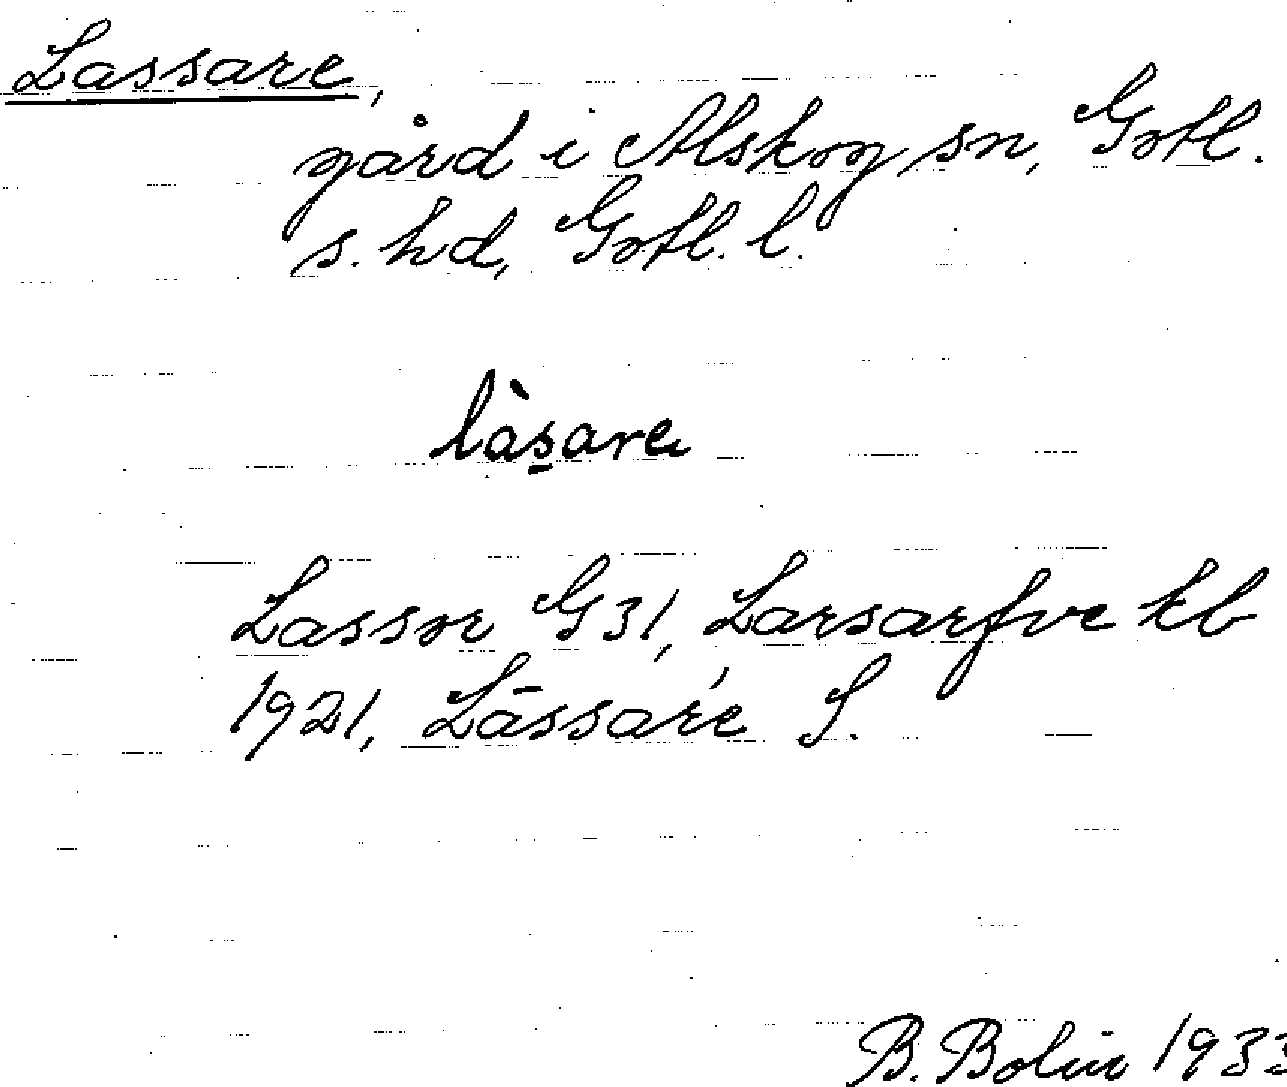 Lassare,
gård i Alskog sn, Gotl.
s. hd, Gotl. l.
làs̱are
Lassor G 31, Larsarfve kb
1921, Lāssare S.
B. Bolin 1933